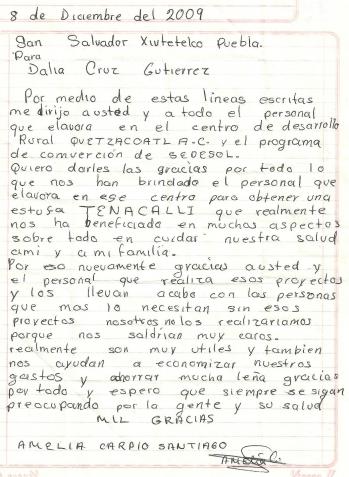 8 de Diciembre del 2009
San Salvador Xiutetelco Puebla.
Para
Dalia Cruz Gutierrez
Por medio de estas lineas escritas
me dirijo austed y a todo el personal
que elavora en el centro de desarrollo
Rural QUETZACOATL A.C. y el programa
de comverción de SEDESOL.
Quiero darles las gracias por todo lo
que nos han brindado el personal que
elavora en ese centro para obtener una
estufa TENACALLI que realmente
nos ha beneficiado en muchos aspectos
sobre todo en cuidar nuestra salud
ami y a mi familia.
Por eso nuevamente gracias austed y
el personal que realiza esos proyectos
y los llevan acabo con las personas
que mas lo necesitan sin esos
proyectos nosotros no los realizariamos
porque nos saldrian muy caros.
realmente son muy utiles y tambien
nos ayudan a economizar nuestros
gastos y ahorrar mucha leña gracias
por todo y espero que siempre se sigan
preocupando por la gente y su salud
MIL GRACIAS
AMELIA CARPIO SANTIAGO
Amelia C.